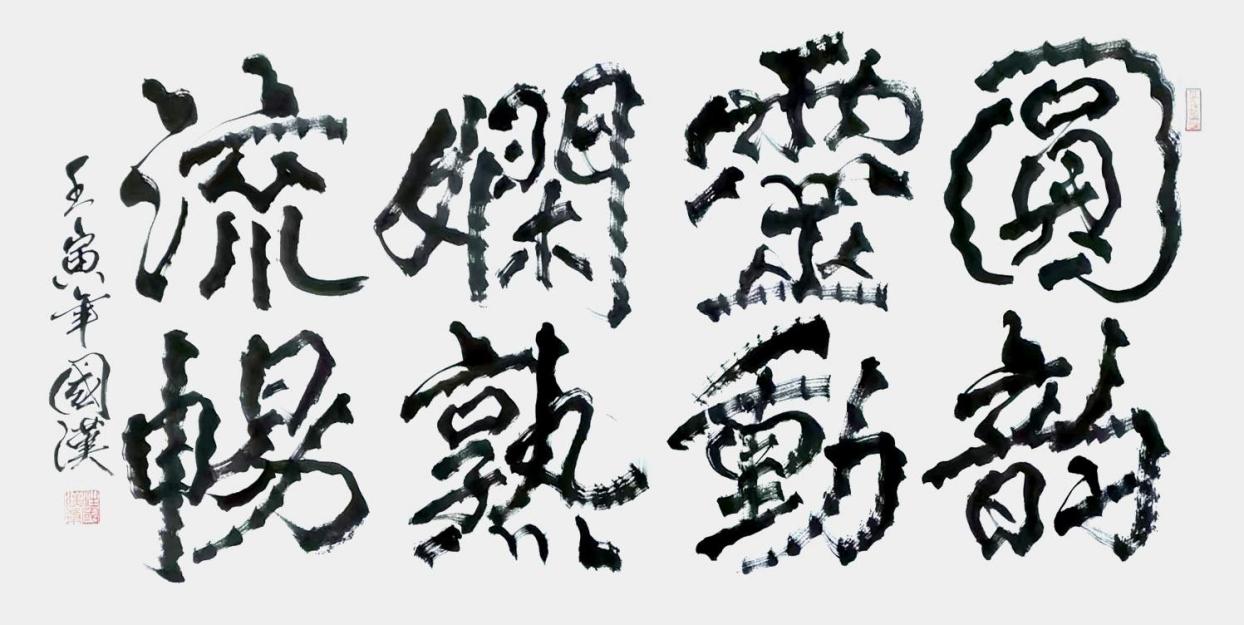 圓韵
靈動
嫻熟
流暢
壬寅年國漢